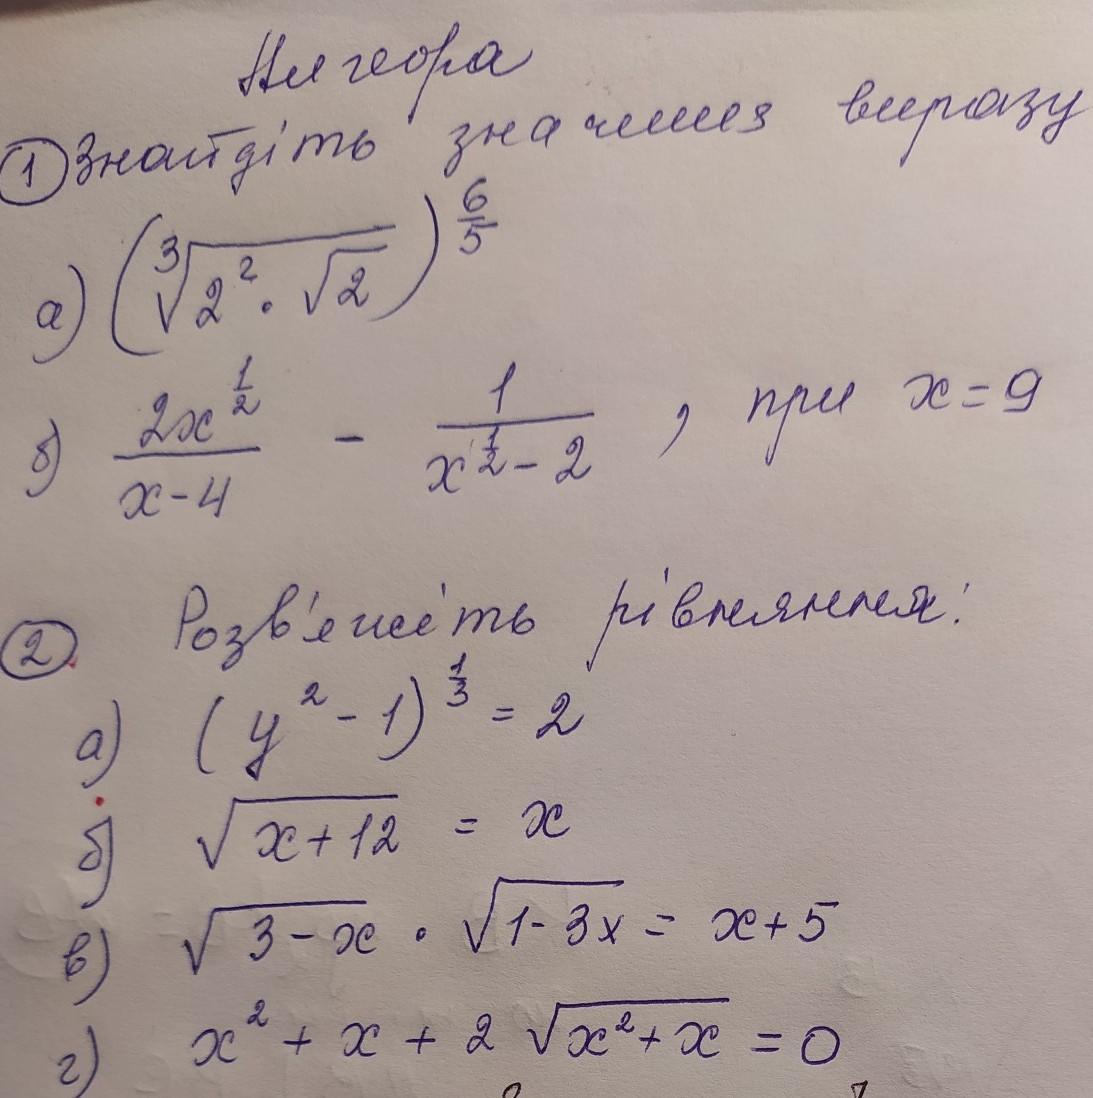 Алгебра
① Знайдіть значення виразу
а) (∛(2² · √2))^(6/5)
б) 2x^(1/2) / (x-4) - 1 / (x^(1/2) - 2) , при x = 9
② Розв'яжіть рівняння:
а) (y² - 1)^(1/3) = 2
б) √(x+12) = x
в) √(3-x) · √(1-3x) = x+5
г) x² + x + 2 √(x²+x) = 0